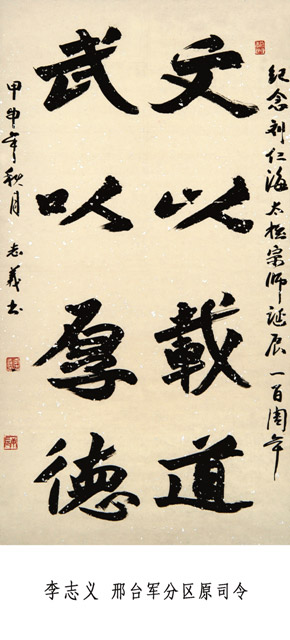 纪念刘仁海太极宗师诞辰一百周年
文以載道
武以厚德
甲申年秋月 志義书
李志义 邢台军分区原司令